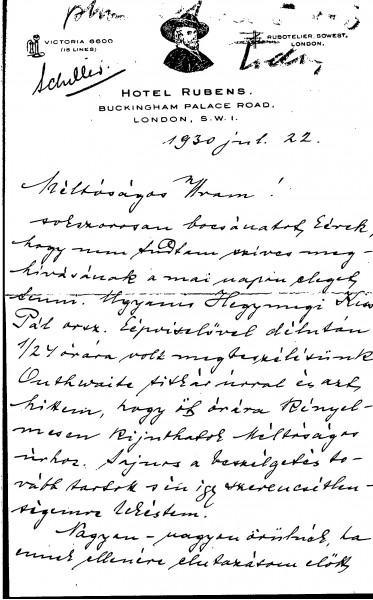 VICTORIA 6600
(15 LINES)
RUBOTELIER, SOWEST,
LONDON.
Schiller
HOTEL RUBENS.
BUCKINGHAM PALACE ROAD,
LONDON, S.W.1.
1930 jul. 22.
Méltóságos Uram!
sokszorosan bocsánatot kérek,
hogy nem tudtam szíves meg-
hívásának a mai napon eleget
tenni. Ugyanis Hegymegi Kiss
Pál orsz. képviselővel délután
1/2 4 órára volt megbeszélésünk
Outhwaite titkár úrral és azt
hittem, hogy öt órára kényel-
mesen kijuthatok Méltóságos
úrhoz. Sajnos a beszélgetés to-
vább tartott s én így szerencsétlen-
ségemre lekéstem.
Nagyon-nagyon örülnék, ha
ennek ellenére elutazásom előtt